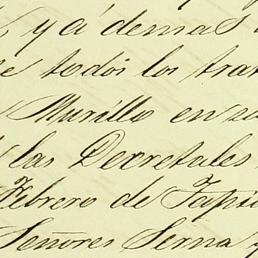 y ademas
todos los tra
Murillo en
las Decretales
Febrero de Tapia
Señores Serna y